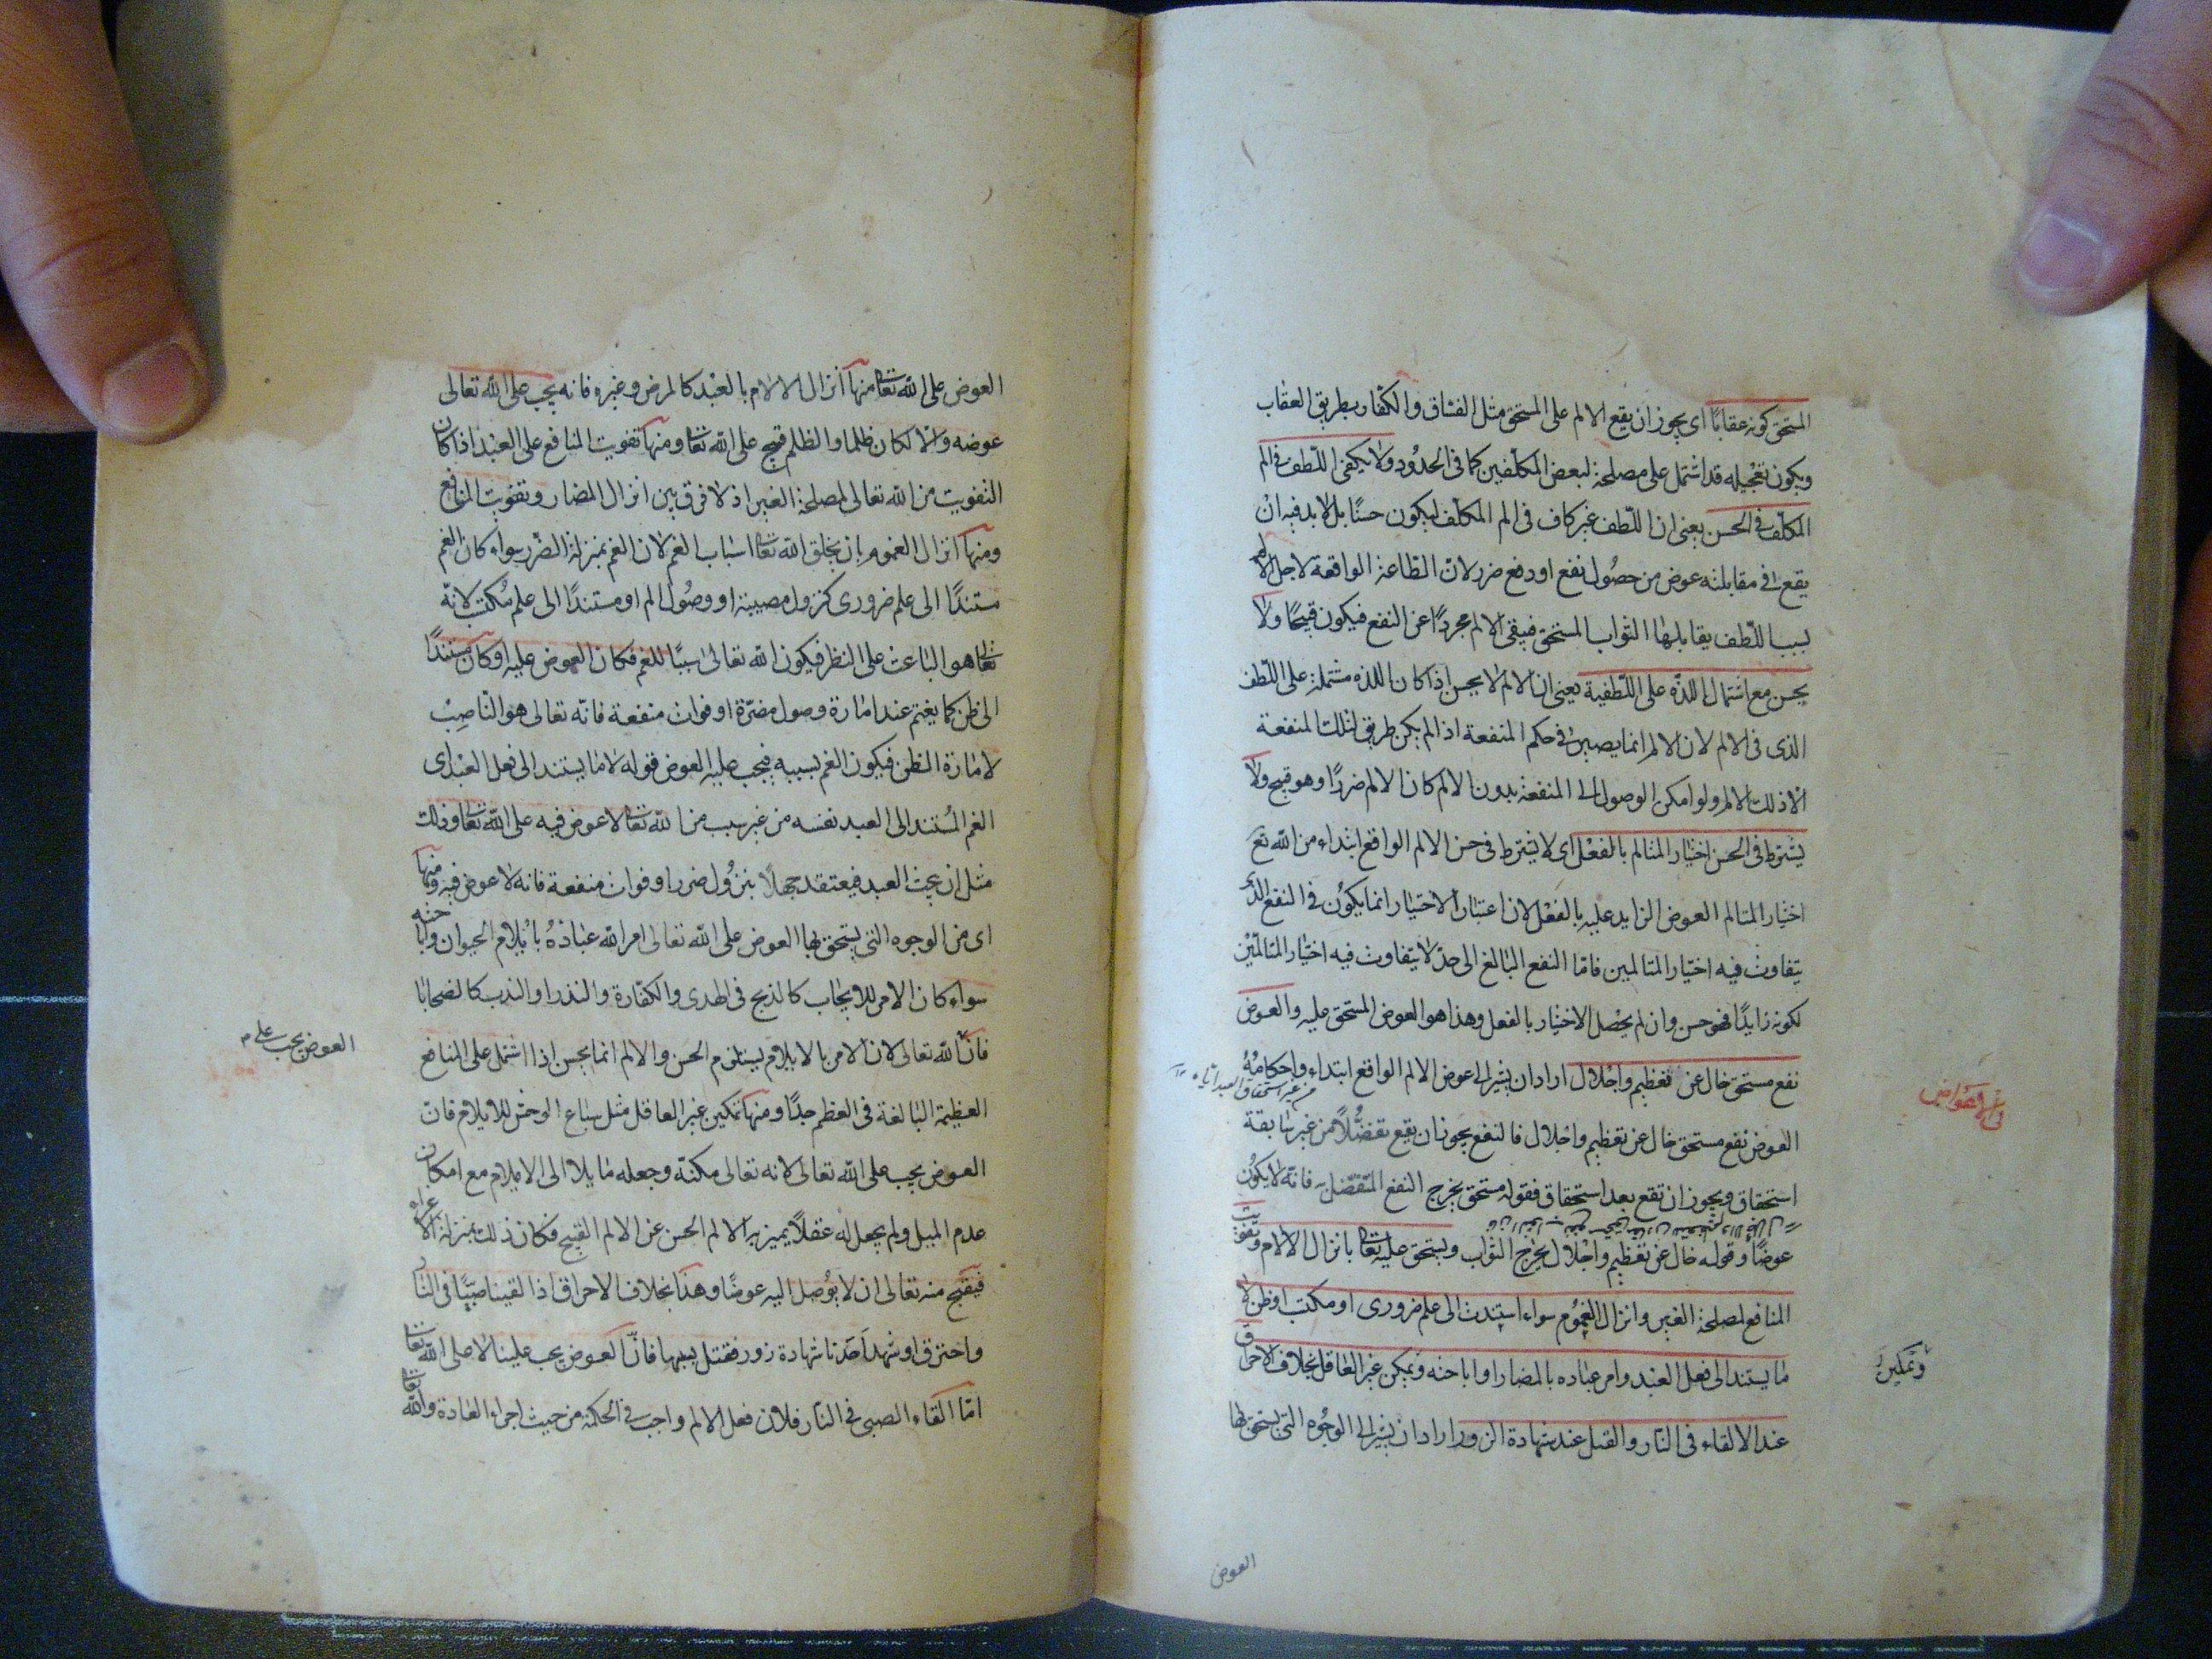 المستحق كونه عقابًا اى يجوز ان يقع الالم على المستحق مثل الفساق والكفار بطريق العقاب
ويكون تعجيله قد اشتمل على مصلحة لبعض المكلّفين كما فى الحدود ولا يكفى اللّطف فى الم
المكلّف فى الحسن يعنى ان اللّطف غير كاف فى الم المكلّف ليكون حسنًا بل لا بد فيه ان
يقع فى مقابلته عوض من حصول نفع او دفع ضرر لان الطّاعة الواقعة لاجل الالم
بسبب اللّطف يقابلها الثواب المستحق فيبقى الالم مجردًا عن النفع فيكون قبيحًا ولا
يحسن مع اشتمال اللذّه على اللّطفية يعنى ان الالم لا يحسن اذا كان اللذه مشتملة على اللّطف
الذى فى الالم لان الالم انما يصير فى حكم المنفعة اذا لم يكن طريق لتلك المنفعة
الا ذلك الالم ولو امكن الوصول الى المنفعة بدون الالم كان الالم ضررًا وهو قبيح ولا
يشترط فى الحسن اختيار المتالم بالفعل اى لا يشترط فى حسن الالم الواقع ابتداء من الله تع
اختيار المتالم العوض الزايد عليه بالفعل لان اعتبار الاختيار انما يكون فى النفع الذى
يتفاوت فيه اختيار المتالمين فامّا النفع البالغ الى حدّ لا يتفاوت فيه اختيار المتالمين
لكونه زايدًا فهو حسن وان لم يحصل الاختيار بالفعل وهذا هو العوض المستحق عليه والعوض
نفع مستحق خال عن تعظيم واجلال اراد ان يشير الى عوض الالم الواقع ابتداء واحكامه
فى الاعواض
من غير استحقاق العبد
العوض نفع مستحق خال عن تعظيم واجلال فالنفع يجوز ان يقع تفضّلًا من غير سابقة
استحقاق ويجوز ان تقع بعد استحقاق فقوله مستحق يخرج النفع المتفضّل به فانّه لا يكون
عوضًا وقوله خال عن تعظيم واجلال يخرج الثواب ويستحق عليه تعالى بانزال الالام وتفويت
المنافع لمصلحة الغير وانزال الغموم سواء استندت الى علم ضرورى او مكتسب او ظن لا
ما يستند الى فعل العبد وامر عباده بالمضار او اباحته وتمكين غير العاقل بخلاف الاحراق
وتمكين
عند الالقاء فى النار والقتل عند شهادة الزور اراد ان يشير الى الوجوه التى يستحق بها
العوض
العوض على الله تعالى منها انزال الالام بالعبد كالمرض وغيره فانه يجب على الله تعالى
عوضه والا لكان ظلما والظلم قبيح على الله تعالى ومنها تفويت المنافع على العبد اذا كان
التفويت من الله تعالى لمصلحة الغير اذ لا فرق بين انزال المضار وتفويت المنافع
ومنها انزال الغموم بان يخلق الله تعالى اسباب الغم لان الغم بمنزلة الضّرر سواء كان الغم
مستندًا الى علم ضرورى كنزول مصيبة او وصول الم او مستندًا الى علم مكتسب لانّه
تعالى هو الباعث على النظر فيكون الله تعالى سببًا للغم فكان العوض عليه او كان مستندًا
الى ظن كما يغتم عند امارة وصول مضرّة او فوات منفعة فانّه تعالى هو النّاصب
لامارة الظن فيكون الغم بسببه فيجب عليه العوض قوله لا ما يستند الى فعل العبد اى
الغم المستند الى العبد نفسه من غير سبب من الله تعالى لا عوض فيه على الله تعالى وذلك
مثل ان يبحث العبد فيعتقد جهلًا بنزول ضرر او فوات منفعة فانه لا عوض فيه ومنها
اى من الوجوه التى يستحق بها العوض على الله تعالى امر الله عباده بايلام الحيوان واباحته
سواء كان الامر للايجاب كالذبح فى الهدى والكفّارة والنذر او الندب كالضحايا
العوض يجب على
فانّ الله تعالى لان الامر بالايلام يستلزم الحسن والالم انما يحسن اذا اشتمل على المنافع
العظيمة البالغة فى العظم حدًا ومنها تمكين غير العاقل مثل سباع الوحش للايلام فان
العوض يجب على الله تعالى لانه تعالى مكنّه وجعله مايلا الى الايلام مع امكان
عدم الميل ولم يجعل له عقلًا يميز به الالم الحسن عن الالم القبيح فكان ذلك بمنزلة الاغراء
فيقبح منه تعالى ان لا يوصل اليه عوضًا وهذا بخلاف الاحراق اذا القينا صبيًا فى النار
واحترق او شهد احدنا شهادة زور فقتل بسببها فانّ العوض يجب علينا لا على الله تعالى
امّا القاء الصبى فى النار فلان فعل الالم واجب فى الحكمة من حيث اجراء العادة والله تعالى